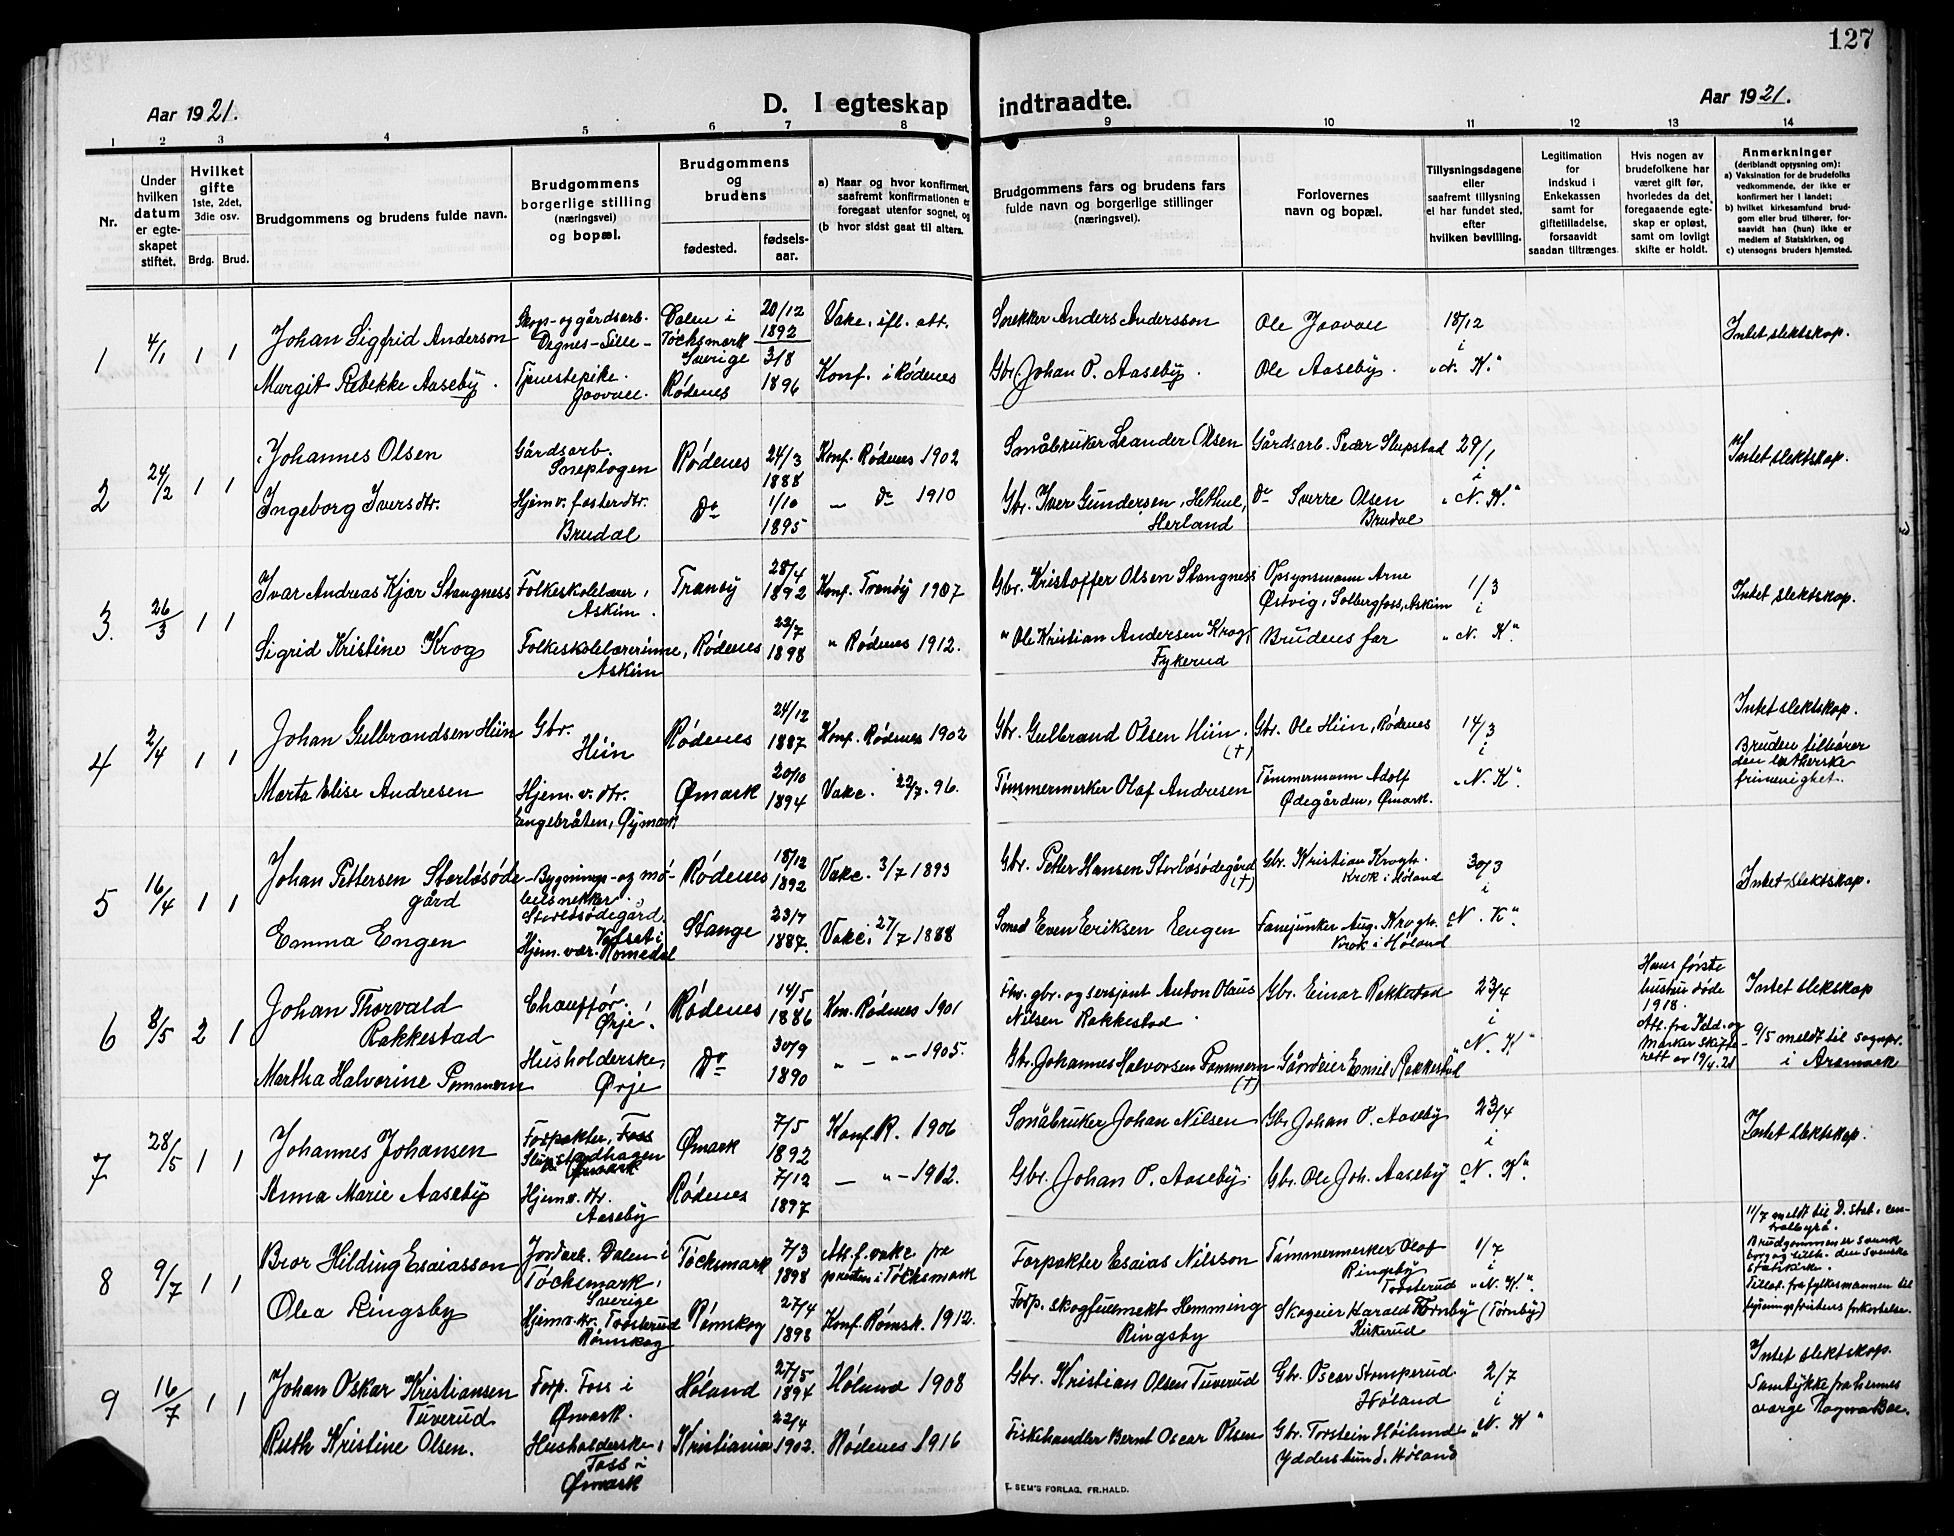 127
Aar 1921.
D. I egteskap indtraadte.
Aar 1921.
1 2 3 4 5 6 7 8 9 10 11 12 13 14
Nr.
Under hvilken datum er egteskapet stiftet.
Hvilket gifte 1ste, 2det, 3die osv.
Brdg. Brud.
Brudgommens og brudens fulde navn.
Brudgommens borgerlige stilling (næringsvei) og bopæl.
Brudgommens og brudens
fødested. fødselsaar.
a) Naar og hvor konfirmert, saafremt konfirmationen er foregaat utenfor sognet, og
(b hvor sidst gaat til alters.
Brudgommens fars og brudens fars fulde navn og borgerlige stillinger (næringsvei).
Forlovernes navn og bopæl.
Tillysningsdagene eller saafremt tillysning ei har fundet sted, efter hvilken bevilling.
Legitimation for Indskud i Enkekassen samt for giftetilladelse, forsaavidt saadan tiltrænges.
Hvis nogen av brudefolkene har været gift før, hvorledes da det foregaaende egteskap er opløst, samt om lovligt skifte er holdt.
Anmerkninger
(deriblandt opysning om):
a) Vaksination for de brudefolks vedkommende, der ikke er konfirmert her i landet;
b) hvilket kirkesamfund brudgom eller brud tilhører, forsaavidt han (hun) ikke er medlem af Statskirken, og
c) utensogns bruders hjemsted.
1 4/1 1 1 Johan Sigfrid Anderson Skog- og gårdsarb. Dalen i Töcksmark Sverige 20/12 1892 Vakc. ifl. att. Snekker Anders Andersson Ole Jaavall 18/12 i Intet slektskap.
Margit Rebekke Aaseby. Tjenestepike. Jaavall. Rødenes 3/8 1896 Konf. i Rødenes Gbr. Johan O. Aaseby. Ole Aaseby. "N. K."
2 24/2 1 1 Johannes Olsen Gårdsarb. Sneplogen Rødenes 24/3 1888 Konf. Rødenes 1902 Småbruker Leander Olsen Gårdsarb. Peder Slupstad 29/1 i Intet slektskap.
Ingeborg Iversdtr. Hjem.v. fosterdtr. Brudal Do 1/10 1895 — do 1910 Gbr. Iver Gundersen, Herland do Sverre Olsen Brudal "N. K."
3. 26/3 1 1 Ivar Andreas Kjær Stangness Folkeskolelærer, Askim. Tranøy 28/4 1892 Konf. Tranøy 1907 Gbr. Kristoffer Olsen Stangness Opsynsmann Arne Østvig, Solbergfoss, Askim 1/3 i Intet slektskap.
Sigrid Kristine Krog Folkeskolelærerinne, Askim Rødenes 22/7 1898 " Rødenes 1912. " Ole Kristian Andersen Krog, Fykerud Brudens far "N. K".
4 2/4 1 1 Johan Gulbrandsen Hiin Gbr. Hiin Rødenes 24/12 1887 Konf. Rødenes 1902 Gbr. Gulbrand Olsen Hiin. (†) Gbr. Ole Hiin, Rødenes 14/3 i Intet slektskap.
Bruden tilhører den lutherske frimenighet.
Marta Elise Andresen Hjem.v. dtr. Engebråten, Øymark Ømark 20/10 1894 Vakc. 22/7. 96. Tømmermerker Olaf Andresen Tømmermann Adolf Ødegården, Ømark. "N. K"
5 16/4 1 1 Johan Pettersen Storløsødegård Bygnings- og møbelsnekker, Storløsødegård. Rødenes 18/12 1892 Vakc. 3/7 1893 Gbr. Petter Hansen Storløsødegård (†) Gbr. Kristian Krogh. Krok i Høland 30/3 i Intet slektskap.
Emma Engen Hjem.vær. Romedal Stange 23/7 1887. Vakc. 27/7 1888 Smed Even Eriksen Engen Fanejunker Aug. Krogh. Krok i Høland "N. K".
6 8/5 2 1 Johan Thorvald Rakkestad Chauffør, Ørje. Rødenes 14/5 1886 Kon. Rødenes 1901 Fhv. gbr. og sersjant Anton Olaus Nilsen Rakkestad Gbr. Einar Rakkestad 23/4 i Hans første hustru døde 1918. Att. fra Idd og Marker skifterett av 19/4.21 Intet slekskap
9/5 meldt til sognpr. i Aremark
Martha Halvorine Pommern Husholderske, Ørje Do 30/9 1890 " — " — 1905. Gbr. Johannes Halvorsen Pommern (†) Gårdeier Emil Rakkestad "N. K"
7 28/5 1 1 Johannes Johansen Forpakter, Foss Slupstadhagen Ømark Ømark 7/5 1892 Konf. R. 1906 Småbruker Johan Nilsen Gbr. Johan O. Aaseby 23/4 i Intet slektskap.
Anna Marie Aaseby Hjem.v. dtr. Aaseby Rødenes 7/12 1897 — " — 1912. Gbr. Johan O. Aaseby. Gbr. Ole Joh. Aaseby "N. K"
8 9/7 1 1 Bror Hilding Esaiasson Jordarb. Dalen i Töcksmark, Sverige Töcksmark 7/3 1898 Att. f. vakc. fra presten i Töcksmark Forpakter Esaias Nilsson Tømmermerker Olof Ringsby Trosterud 1/7 i "N. K". 11/7 meldt til D. stat. centralbyrå.
Brudgommen er svensk borg og tilh. den svenske statskirke.
Tillat. fra fylkesmannen til lysningsfristens forkortelse.
Olea Ringsby Hjem.v. dtr. Trosterud Rømskog Rømskog 27/4 1898 Konf. Rømsk. 1912. Forp. skogfuldmekt Hemming Ringsby Skogeier Harald Tørnby (Tørnby) Kirkerud
9 16/7 1 1 Johan Oskar Kristiansen Tuverud Forp. Foss i Ømark. Høland 27/5 1894 Høland 1908 Gbr. Kristian Olsen Tuverud Gbr. Oscar Stomperud Høland 2/7 i Intet slektskap.
Samtykke fra hennes verge
Ruth Kristine Olsen. Husholderske, Foss i Ømark Kristiania 22/4 1902. Rødenes 1916 Fiskehandler Bernt Oscar Olsen Gbr. Torstein Høilund Høland "N. K"
E. SEM'S FORLAG. FR.HALD.